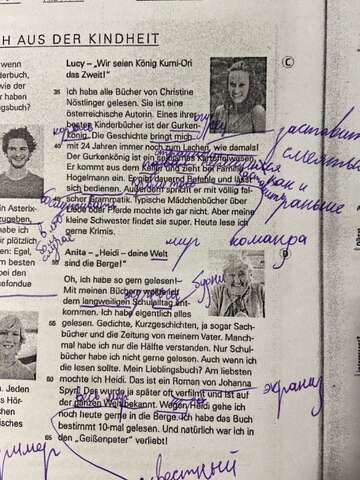 CH AUS DER KINDHEIT
Lucy – „Wir seien König Kumi-Ori
das Zweit!"
Ich habe alle Bücher von Christine
Nöstlinger gelesen. Sie ist eine
österreichische Autorin. Eines ihrer
besten Kinderbücher ist der Gurken-
könig. Die Geschichte bringt mich
mit 24 Jahren immer noch zum Lachen, wie damals!
Der Gurkenkönig ist ein seltsames Kartoffelwesen.
Er kommt aus dem Keller und zieht bei Familie
Hogelmann ein. Er gibt dauernd Befehle und lässt
sich bedienen. Außerdem spricht er mit völlig fal-
scher Grammatik. Typische Mädchenbücher über
Liebe oder Pferde mochte ich gar nicht. Aber meine
kleine Schwester findet sie super. Heute lese ich
gerne Krimis.
C
заставит
смеяться
как и
раньше
мир команда
Anita – „Heidi – deine Welt
sind die Berge!"
D
Oh, ich habe so gern gelesen!
Mit meinen Büchern wollte ich
dem langweiligen Schulalltag ent-
kommen. Ich habe eigentlich alles
gelesen. Gedichte, Kurzgeschichten, ja sogar Sach-
bücher und die Zeitung von meinem Vater. Manch-
mal habe ich nur die Hälfte verstanden. Nur Schul-
bücher habe ich nicht gerne gelesen. Auch wenn ich
die lesen sollte. Mein Lieblingsbuch? Am liebsten
mochte ich Heidi. Das ist ein Roman von Johanna
Spyri. Der wurde ja später oft verfilmt und ist auf
der ganzen Welt bekannt. Wegen Heidi gehe ich
noch heute gerne in die Berge. Ich habe das Buch
bestimmt 10-mal gelesen. Und natürlich war ich in
den „Geißenpeter" verliebt!
весь мир
экраниз
вестный